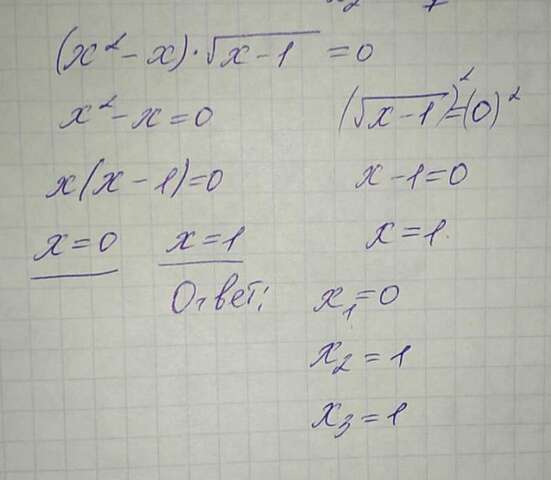 (x² - x) · √x - 1 = 0
x² - x = 0 (√x - 1)² = (0)²
x(x - 1) = 0 x - 1 = 0
x = 0 x = 1 x = 1.
Ответ: x₁ = 0
x₂ = 1
x₃ = 1